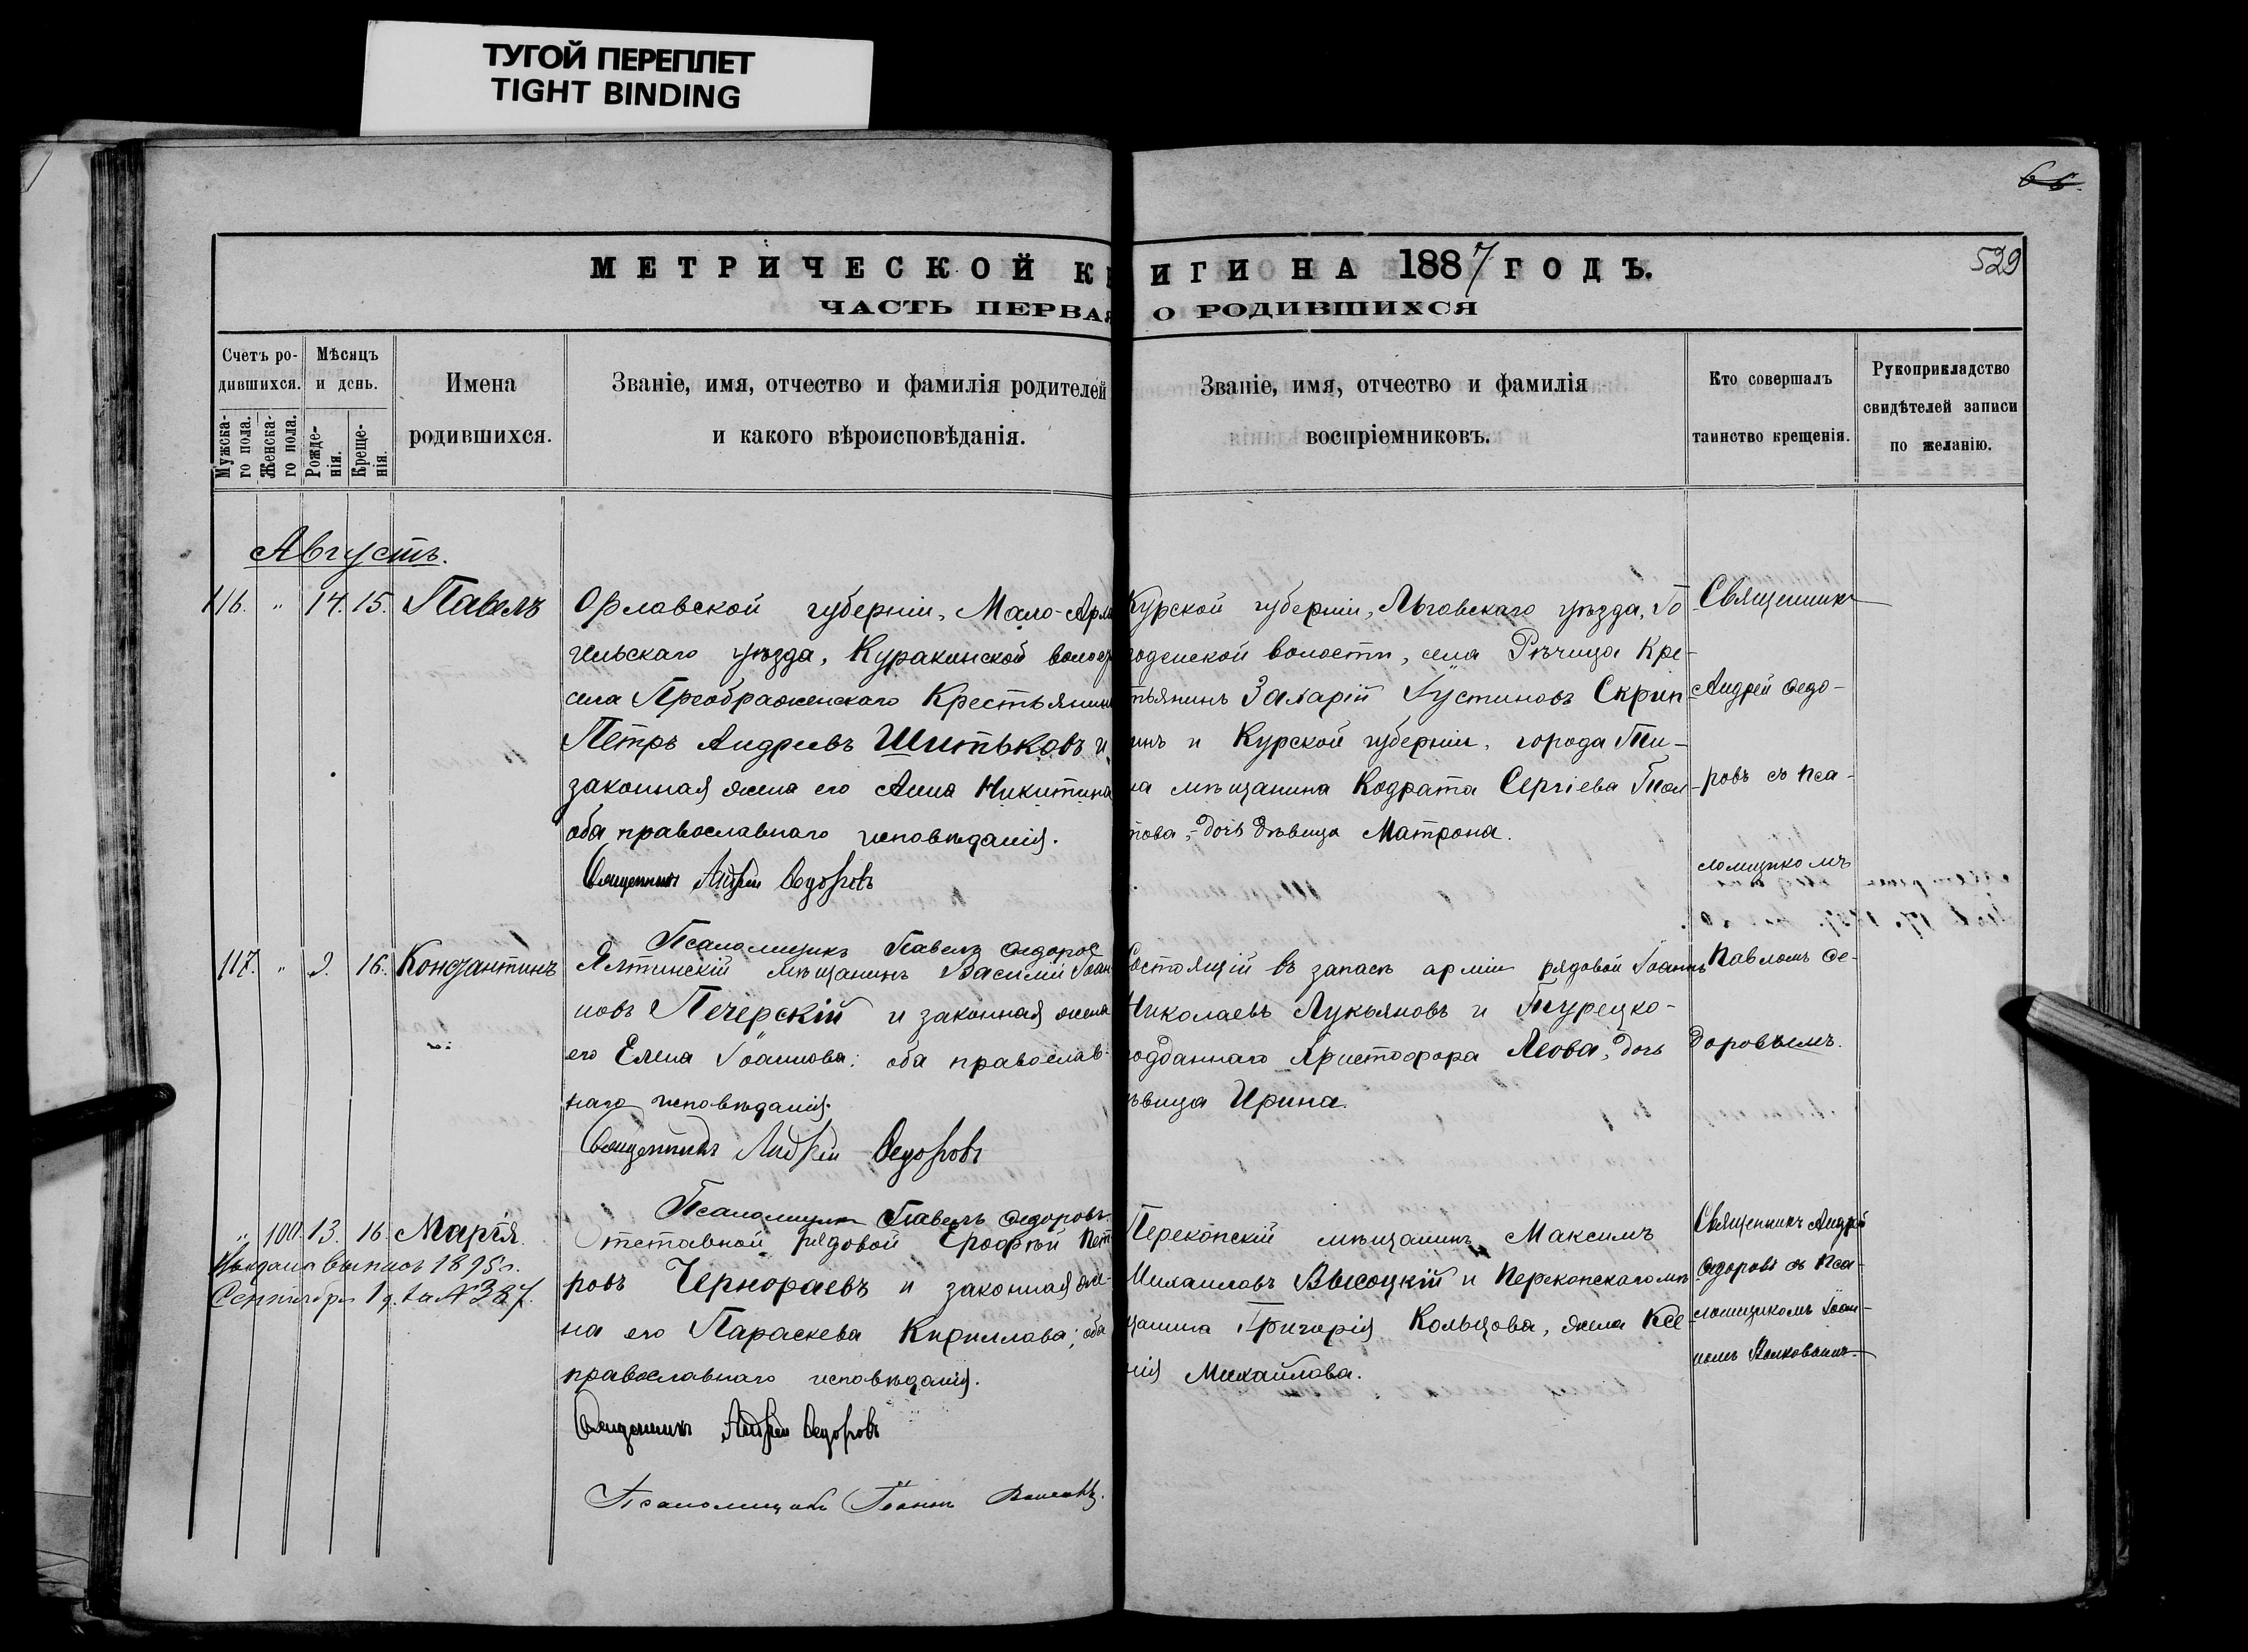 ТУГОЙ ПЕРЕПЛЕТ
TIGHT BINDING
66.
529
МЕТРИЧЕСКОЙ К
ИГИ НА 1887 ГОДЪ.
ЧАСТЬ ПЕРВАЯ
О РОДИВШИХСЯ
Счетъ ро-
дившихся.
Мужска-
го пола.
Женска-
го пола.
Мѣсяцъ
и день.
Рожде-
нія.
Креще-
нія.
Имена
родившихся.
Званіе, имя, отчество и фамилія родителей
и какого вѣроисповѣданія.
Званіе, имя, отчество и фамилія
воспріемниковъ.
Кто совершалъ
таинство крещенія.
Рукоприкладство
свидѣтелей записи
по желанію.
Августъ.
116. " 14. 15. Павелъ
Орлавской губерніи, Мало-Арха
гельскаго уѣзда, Куракинской волост
села Преображенскаго Крестьянин
Петръ Андреевъ Шитьковъ и
законная жена его Анна Никитина
оба православнаго исповѣданія.
Священникъ Андрей Ѳедоровъ
Псаломщикъ Павелъ Ѳедоров
Курской губерніи, Льговскаго уѣзда, Го
роденской волости, села Рѣчица Кре-
тьянинъ Захарій Іустиновъ Скрип-
инъ и Курской губерніи, города Ти-
ма мѣщанина Кодрата Сергіева
това, дочь дѣвица Матрона.
Священникъ
Андрей Ѳедо-
ровъ съ пса-
ломщикомъ
Павломъ Ѳе-
доровымъ.
117. " 9. 16. Константинъ
Ялтинскій мѣщанинъ Василий Іоан
новъ Печерскій и законная жена
его Елена Іоаннова: оба православ-
наго исповѣданія.
Священникъ Андрей Ѳедоровъ
Псаломщикъ Павелъ Ѳедоровъ.
Состоящій въ запасѣ арміи рядовой Іоаннъ
Николаевъ Лукьяновъ и Турецко-
подданнаго Христофора Леова, дочь
ѣвица Ирина.
" 100. 13. 16. Марія.
Выдана выпись 1895 г.
Сентября 1 д. за № 387.
Отставной рядовой Ерофѣй Пет
ровъ Чернораевъ и законная же-
на его Параскева Кириллова; оба
православнаго исповѣданія.
Священникъ Андрей Ѳедоровъ
Псаломщикъ Іоаннъ
Перекопскій мѣщанинъ Максимъ
Михаиловъ Высоцкій и Перекопскаго мѣ
щанина Григорія Кольцова, жена Ксе
нія Михайлова.
Священникъ Андрей
Ѳедоровъ съ пса-
ломщикомъ Іоан-
номъ Волковымъ.